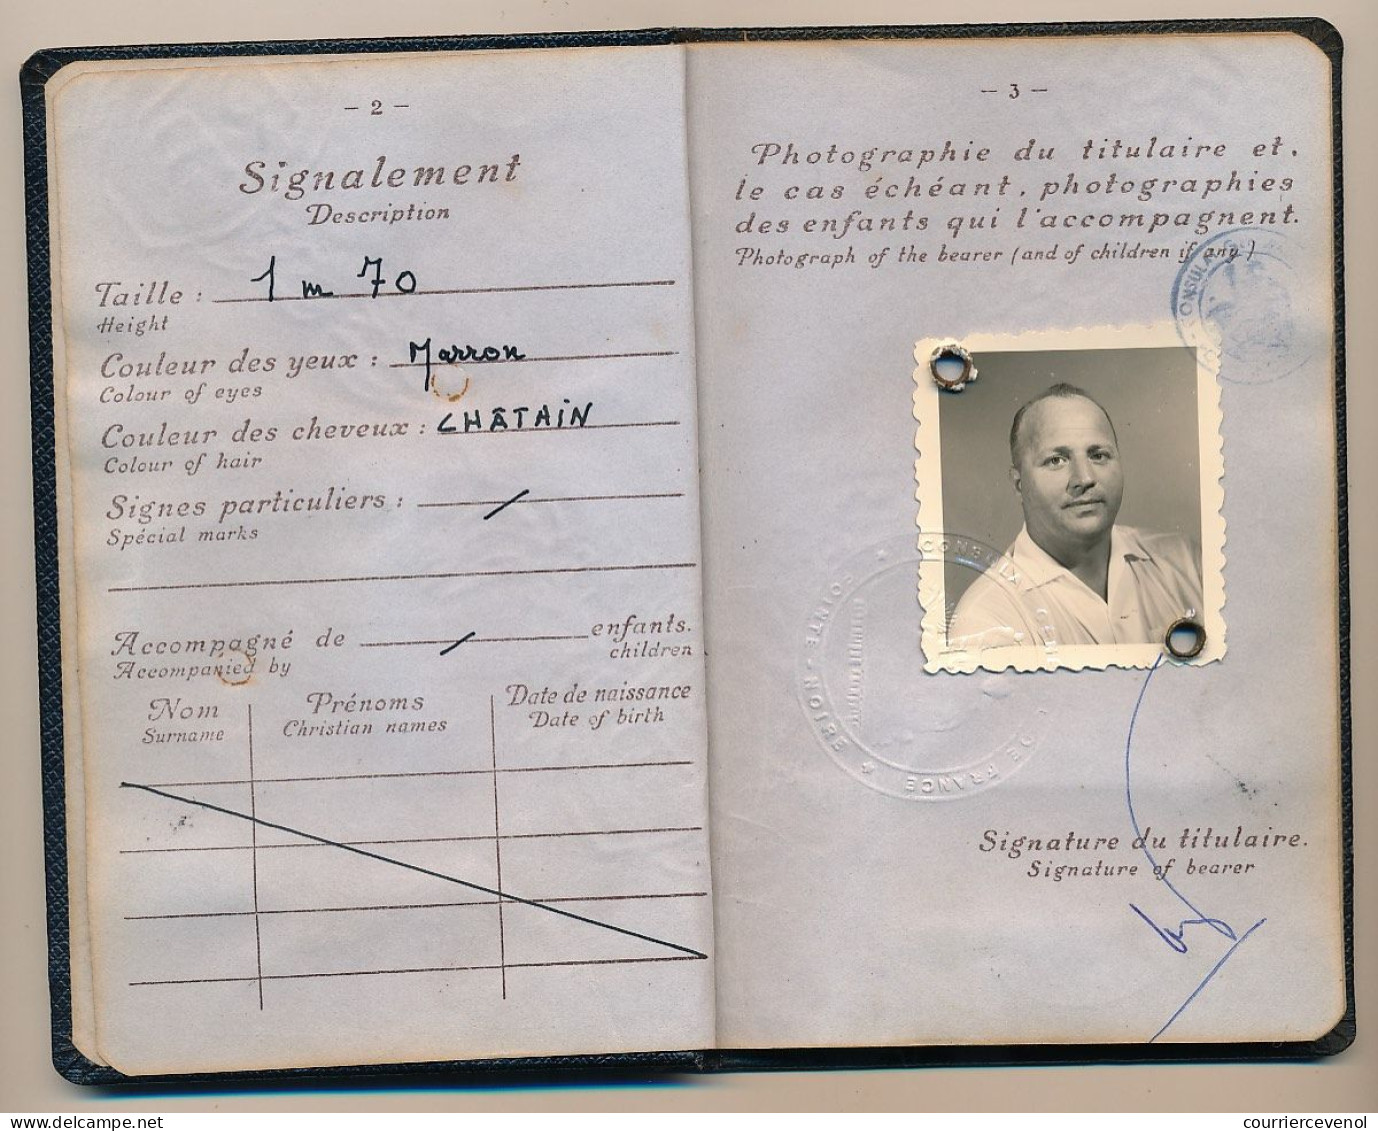 - 2 -
Signalement
Description
Taille : 1 m 70
Height
Couleur des yeux : Marron
Colour of eyes
Couleur des cheveux : CHÂTAIN
Colour of hair
Signes particuliers : /
Spécial marks
Accompagné de / enfants.
Accompanied by children
Nom Prénoms Date de naissance
Surname Christian names Date of birth
- 3 -
Photographie du titulaire et,
le cas échéant, photographies
des enfants qui l'accompagnent.
Photograph of the bearer (and of children if any)
CONSULA
CONSULA
DE FRANCE
POINTE-NOIRE
Signature du titulaire.
Signature of bearer
delcampe.net
courriercevenol